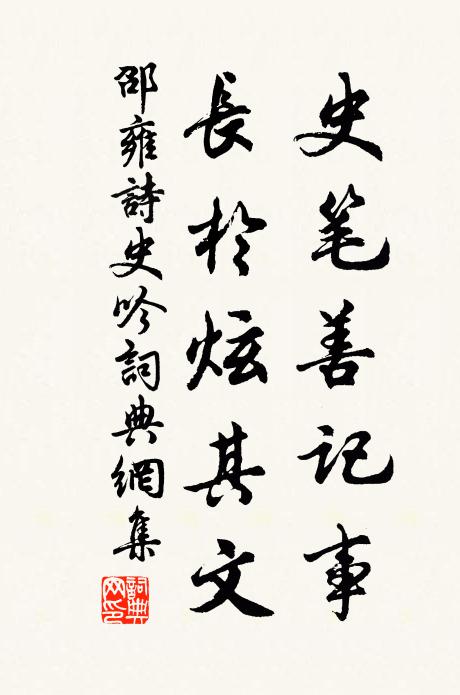 史笔善记事
長於炫其文
邵雍詩史吟詞典網集
詞典網印